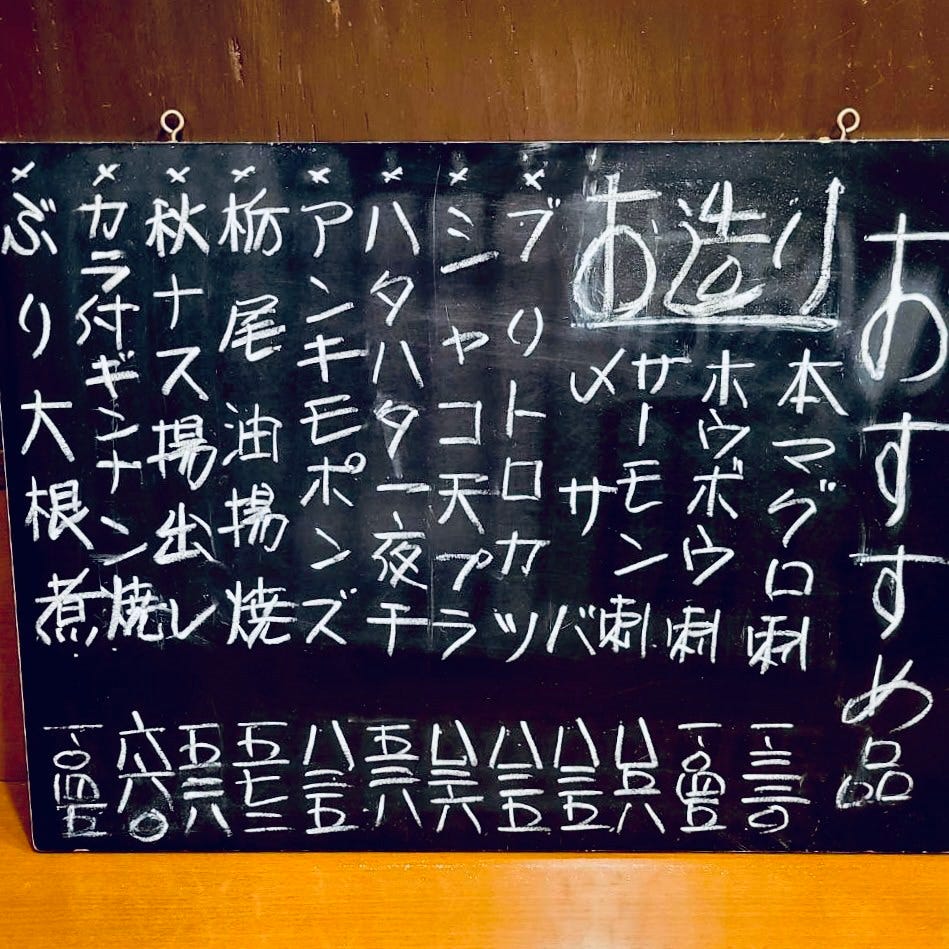 おすすめ品
お造り
本マグロ刺 一、三三〇
ホウボウ刺 一、〇四五
サーモン刺 八五八
〆サバ 八二五
×ブリトロカツ 八二五
×シャコ天プラ 八三六
×ハタハタ一夜干 五二八
×アンキモポンズ 八二五
×栃尾油揚焼 五七二
×秋ナス揚出し 五二八
×カラ付ギンナン焼 六六〇
×ぶり大根煮 一、〇四五